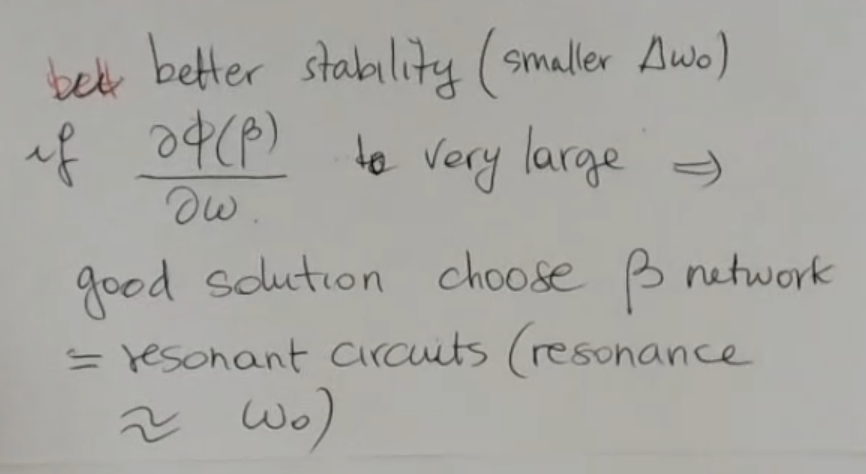 bett better stability (smaller Δω₀)
if ∂Φ(β)/∂ω to very large ⇒
good solution choose β network
= resonant circuits (resonance
≈ ω₀)